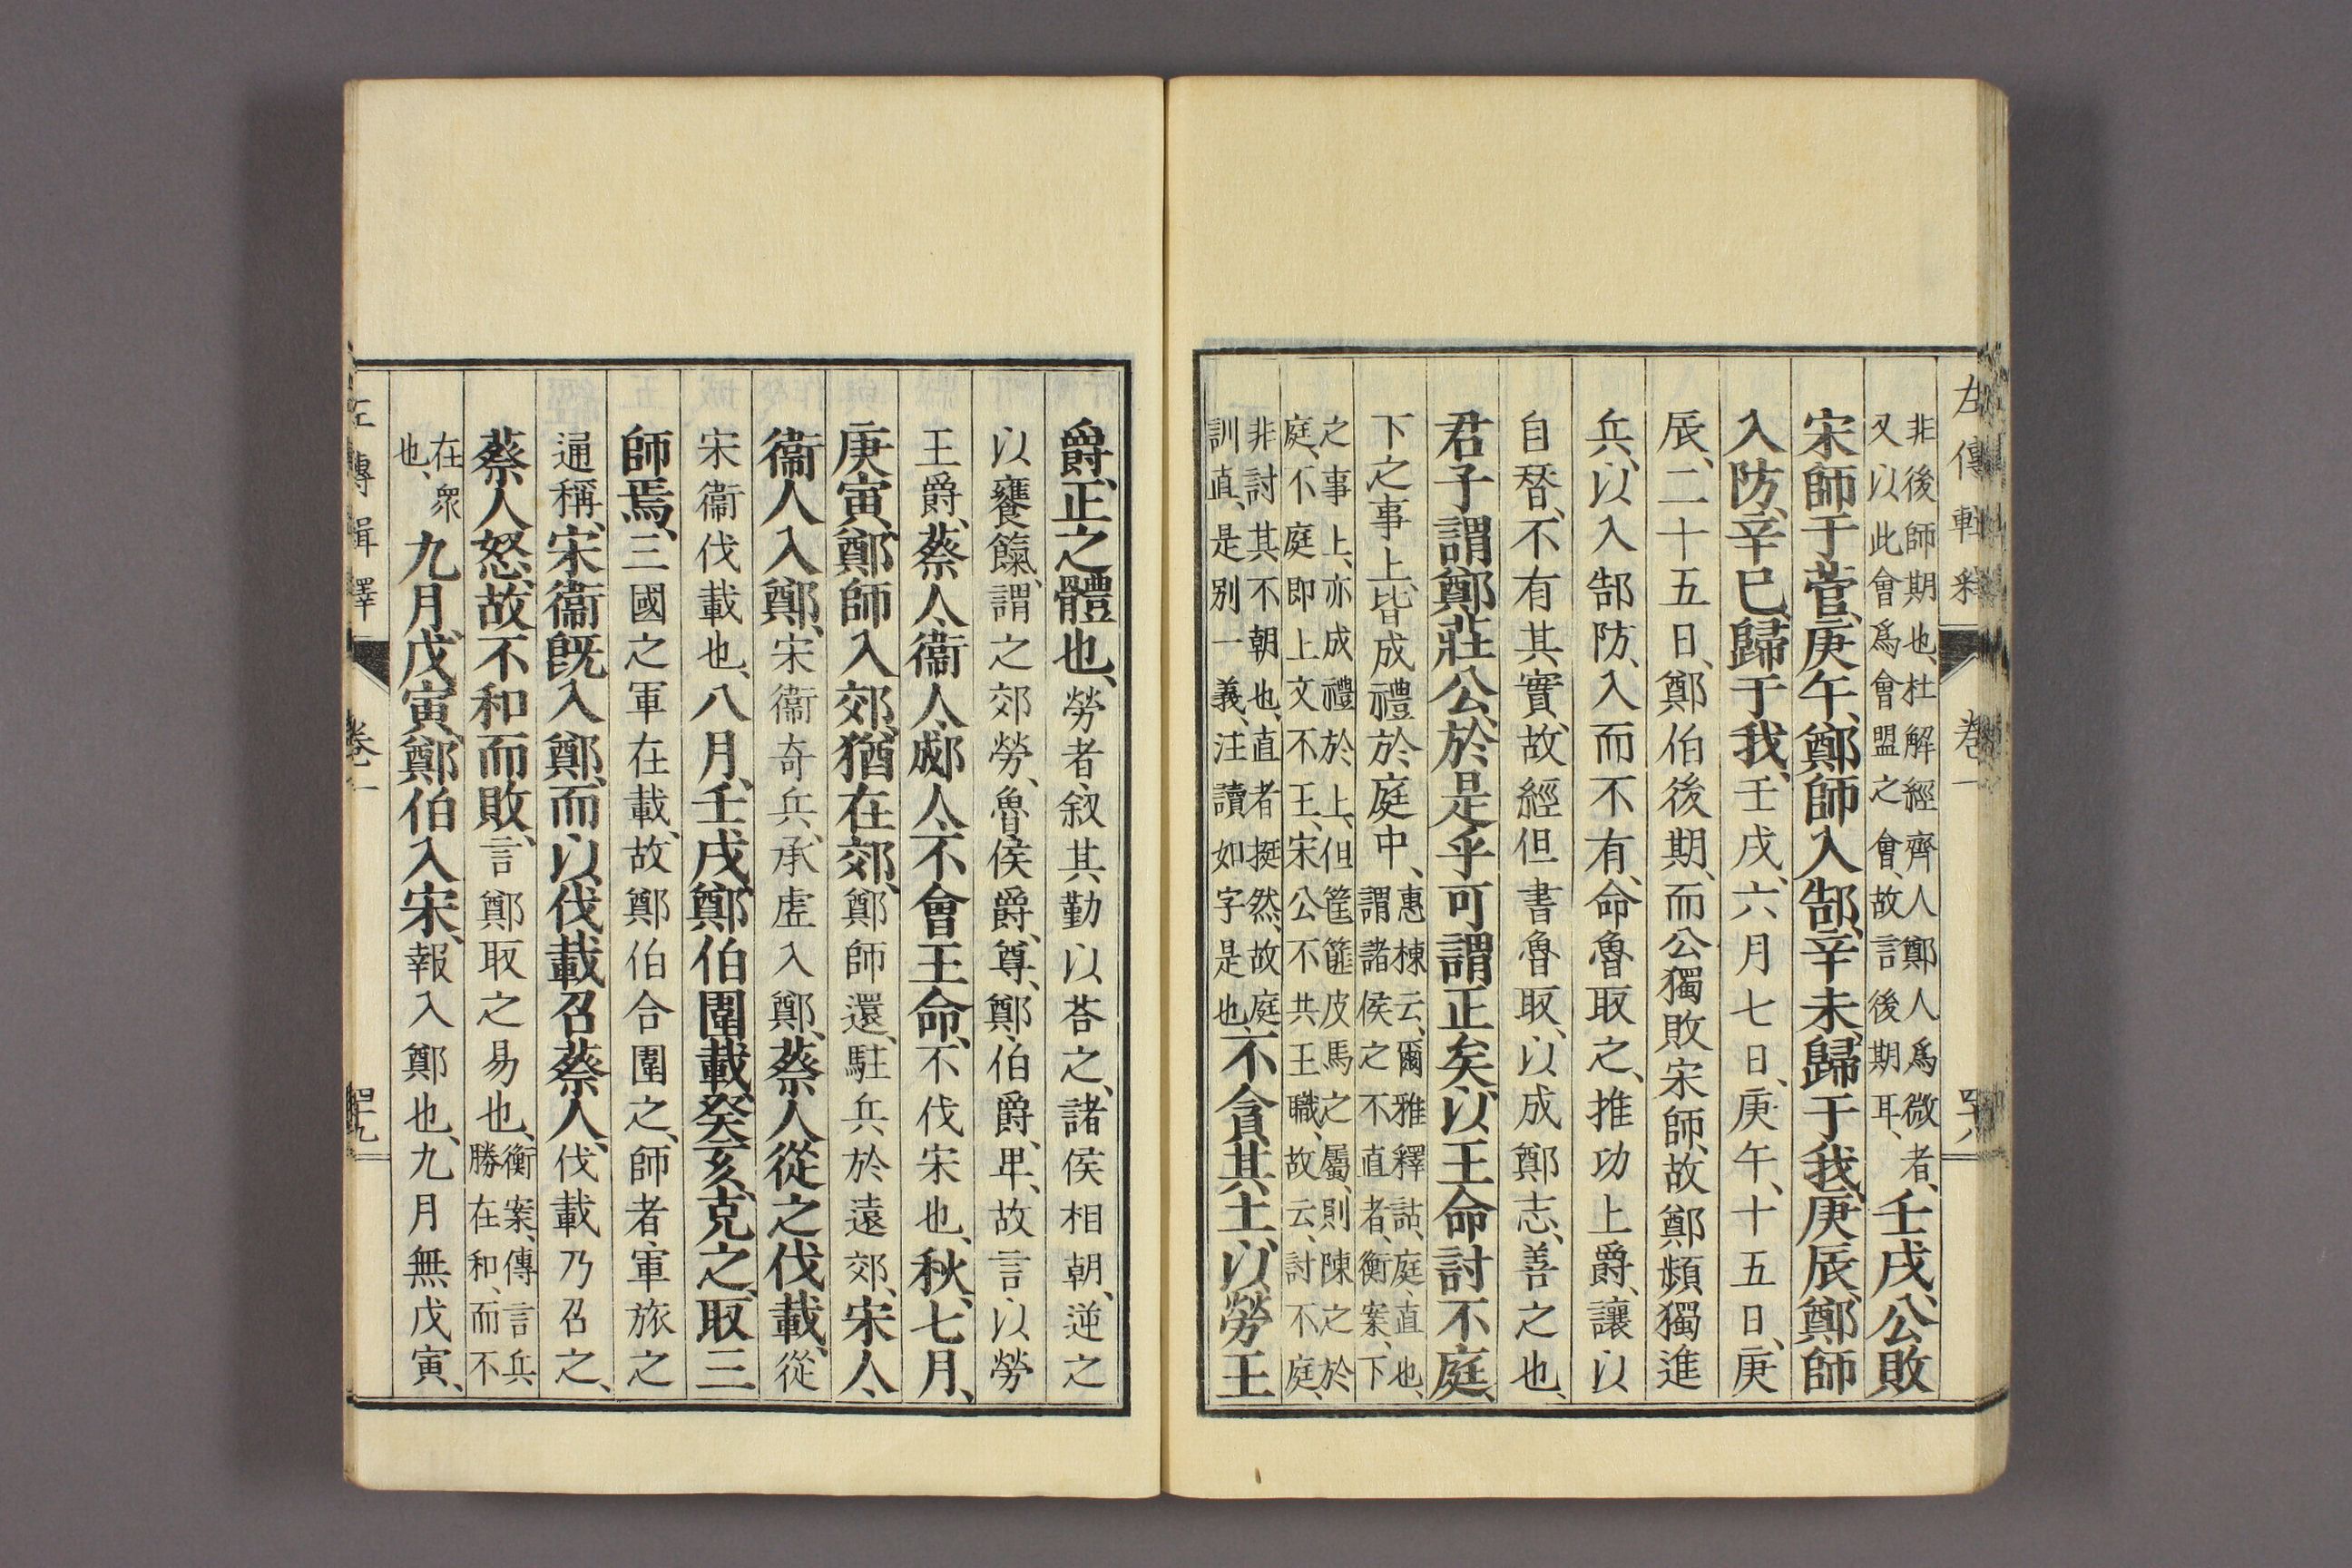 左傳輯釋 卷一 四十八
非後師期也、杜解經齊人鄭人爲微者、
又以此會爲會盟之會、故言後期耳、
壬戌、公敗
宋師于菅、庚午、鄭師入郜、辛未、歸于我、庚辰、鄭師
入防、辛巳、歸于我、壬戌、六月七日、庚午、十五日、庚
辰、二十五日、鄭伯後期、而公獨敗宋師、故鄭頻獨進
兵、以入郜防、入而不有、命魯取之、推功上爵、讓以
自替、不有其實、故經但書魯取、以成鄭志、善之也、
君子謂鄭莊公、於是乎可謂正矣、以王命討不庭、
下之事上、皆成禮於庭中、
惠棟云、爾雅釋詁、庭、直也、
謂諸侯之不直者、衡案、下
之事上、亦成禮於上、但筐篚皮馬之屬、則陳之於
庭、不庭即上文不王、宋公不共王職、故云、討不庭、
非討其不朝也、直者挺然、故庭
訓直、是別一義、注讀如字是也、
不貪其土、以勞王
爵、正之體也、勞者、叙其勤以荅之、諸侯相朝、逆之
以饔餼、謂之郊勞、魯侯爵、尊、鄭伯爵、卑、故言以勞
王爵、蔡人、衞人、郕人、不會王命、不伐宋也、秋、七月、
庚寅、鄭師入郊、猶在郊、鄭師還、駐兵於遠郊、宋人、
衞人入鄭、宋衞奇兵、承虛入鄭、蔡人從之、伐載、從
宋衞伐載也、八月、壬戌、鄭伯圍載、癸亥、克之、取三
師焉、三國之軍在載、故鄭伯合圍之、師者、軍旅之
通稱、宋衞既入鄭、而以伐載召蔡人、伐載乃召之、
蔡人怒、故不和而敗、言鄭取之易也、
衡案、傳言兵
勝在和、而不
在衆
也、
九月、戊寅、鄭伯入宋、報入鄭也、九月無戊寅、
左傳輯釋 卷一 四十九